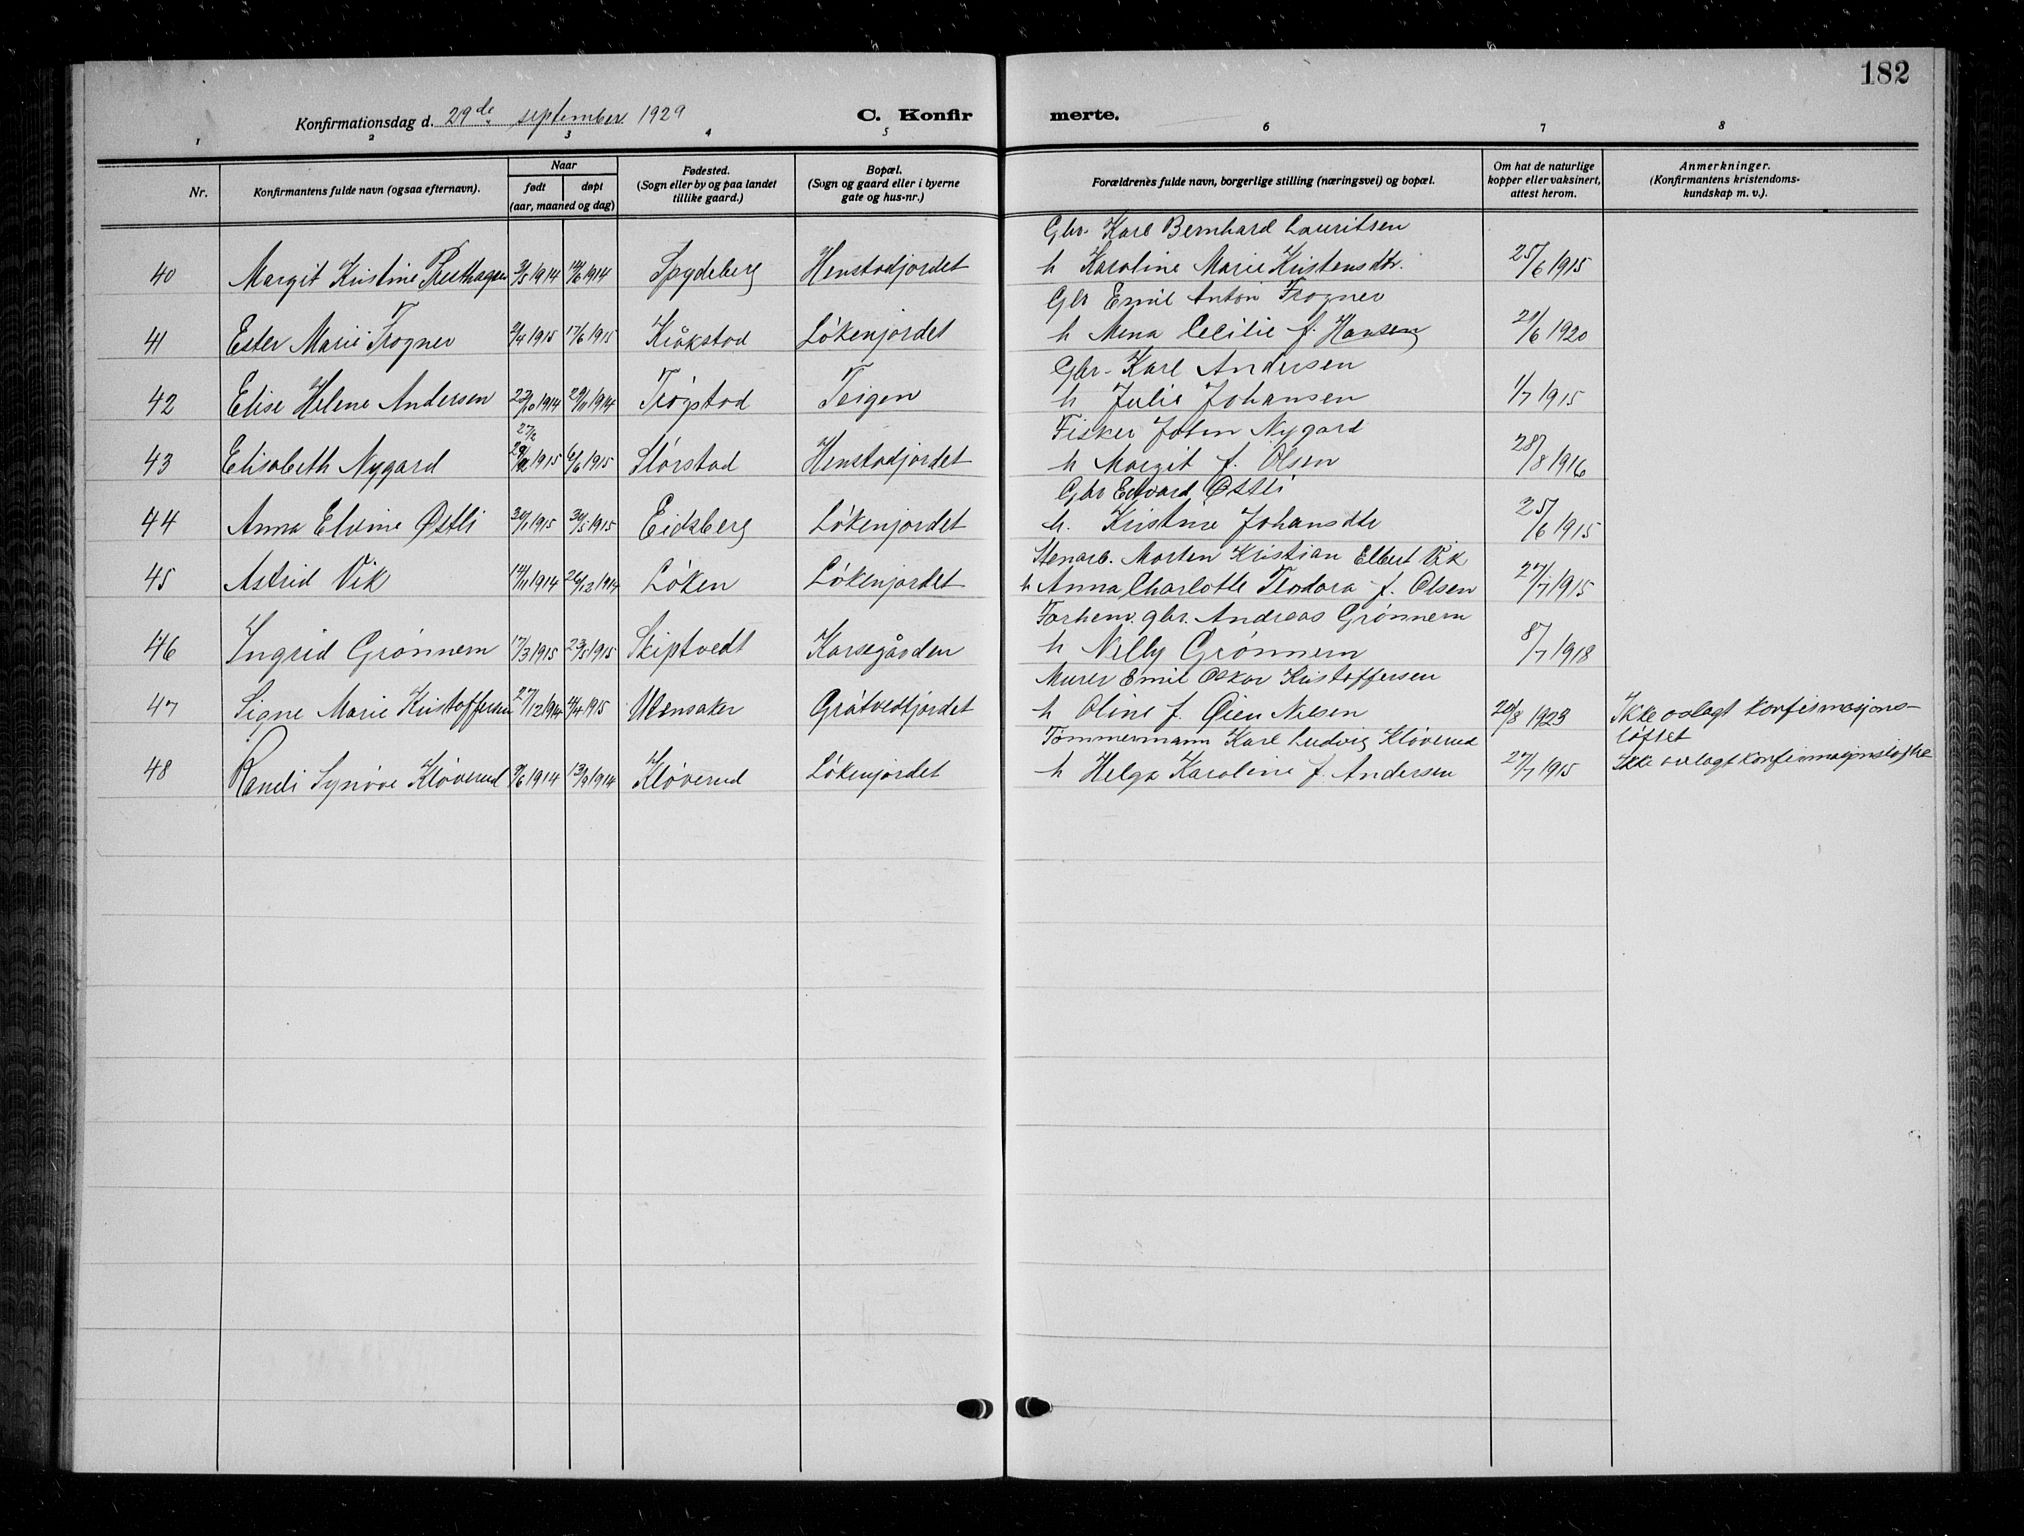 182
Konfirmationsdag d. 29de september 1929 C. Konfirmerte.
1 2 3 4 5 6 7 8
Nr. Konfirmantens fulde navn (ogsaa efternavn). Naar født døpt (aar, maaned og dag) Fødested. (Sogn eller by og paa landet tillike gaard.) Bopæl. (Sogn og gaard eller i byerne gate og hus-nr.) Forældrenes fulde navn, borgerlige stilling (næringsvei) og bopæl. Om hat de naturlige kopper eller vaksinert, attest herom. Anmerkninger. (Konfirmantens kristendoms-kundskap m. v.).
Gbr. Karl Bernhard Lauritsen
40 Margit Kristine 1914 1914 Spydeberg Henstadjordet h Karoline Marie Kristensdtr. 25/6 1915
Gbr Emil Anton Frogner
41 Ester Marie Frogner 2/4 1915 17/6 1915 Kråkstad Løkenjordet h Mena Cecilie f. Hansen 21/6 1920
Gbr. Karl Andersen
42 Elise Helene Andersen 23/10 1914 29/11 1914 Trøgstad Teigen h Julie Johansen 1/7 1915
27/2
Fisker John Nygard
43 Elisabeth Nygard 1915 6/6 1915 Størstad Henstadjordet h Margit f. Olsen 28/8 1916
Gbr Edvard Østli
44 Anna Elvine Østli 30/1 1915 30/5 1915 Eidsberg Løkenjordet h. Kristine Johansdtr 25/6 1915
Stenarb. Morten Kristian Elbert Vik
45 Astrid Vik 14/11 1914 26/12 1914 Løken Løkenjordet h Anna Charlotte Teodora f. Olsen 27/7 1915
Forhenv. gbr. Andreas Grønnern
46 Ingrid Grønnern 17/3 1915 23/5 1915 Skiptvedt Korsegården h Nelly Grønnern 8/7 1918
Murer Emil Oskar Kristoffersen
47 Signe Marie Kristoffersen 27/12 1914 4/4 1915 Ullensaker Gråtvedtjordet h Oline f. Øien Nilsen 20/8 1923 Ikke avlagt konfirmasjons-
løftet
Tømmermann Karl Ludvig Kløverud
48 Randi Synøve Kløverud 9/6 1914 13/9 1914 Kløverud Løkenjordet h Helga Karoline f. Andersen 27/7 1915 Ikke avlagt konfirmasjonsløfte